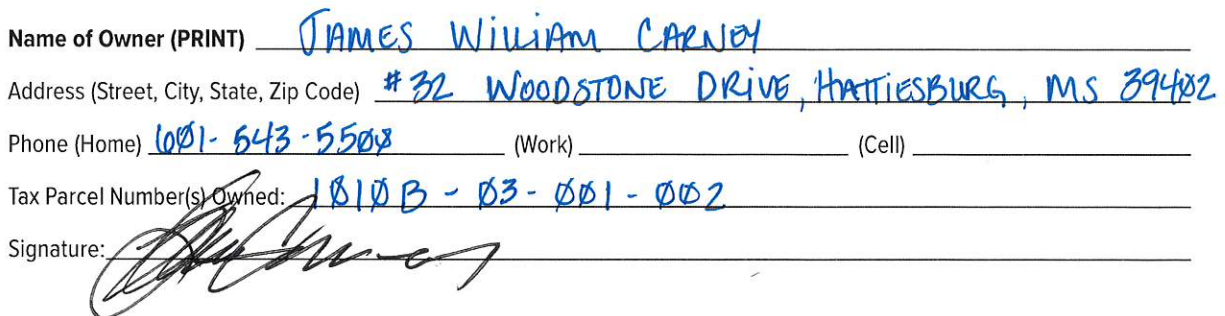 Name of Owner (PRINT) JAMES WILLIAM CARNEY
Address (Street, City, State, Zip Code) #32 WOODSTONE DRIVE, HATTIESBURG, MS 39402
Phone (Home) 601-543-5508 (Work) (Cell)
Tax Parcel Number(s) Owned: 1010B-03-001-002
Signature: